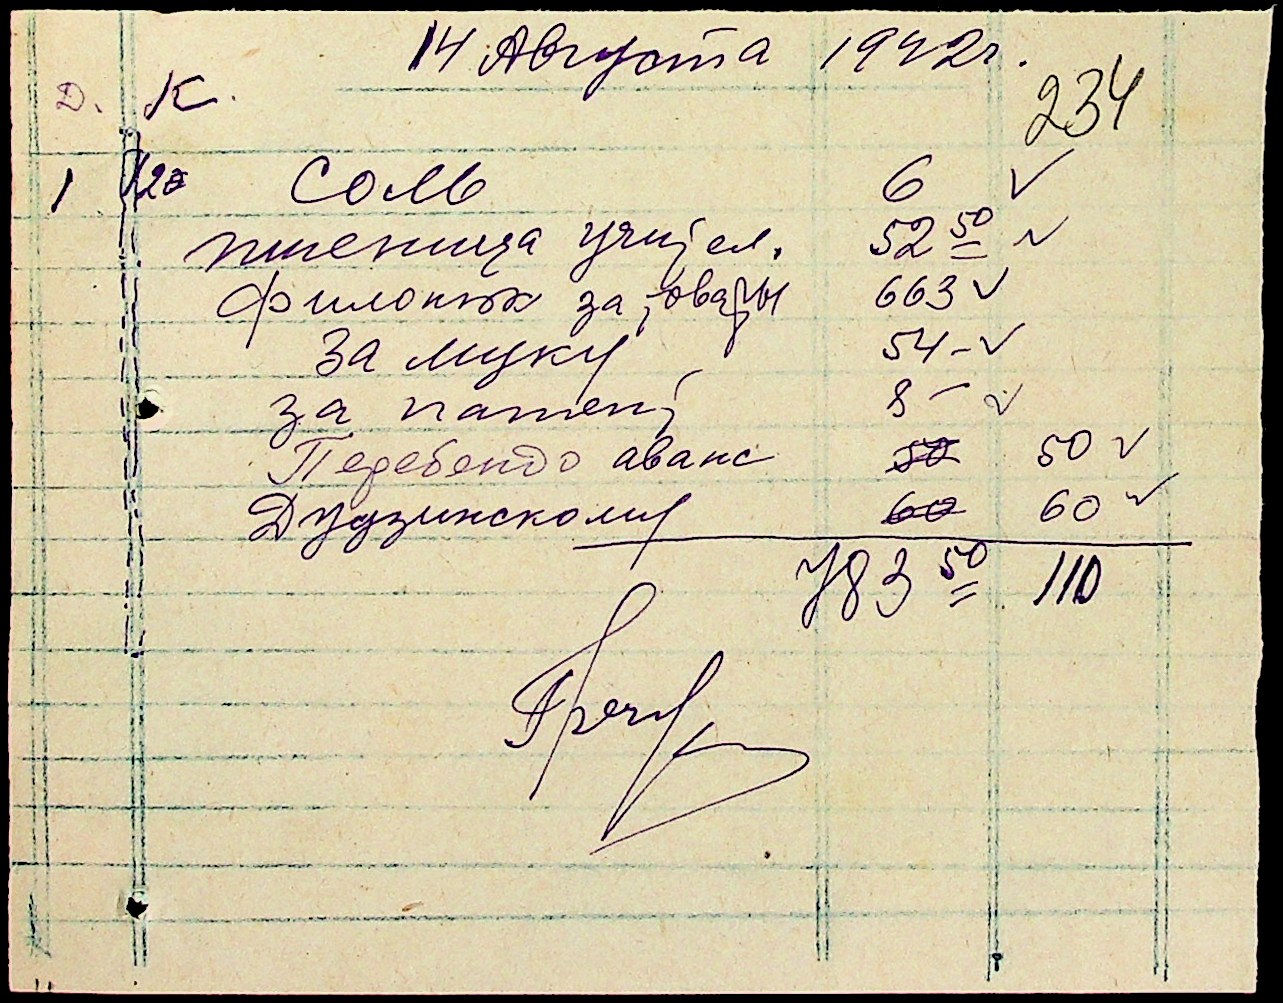 14 Августа 1942 г.
234
Д. К.
1 12 Соль 6 ✓
пшеница учител. 52 50 ✓
Филонюк за товары 663 ✓
За муку 54 - ✓
за патент 8 - ✓
Перебендо аванс 50 50 ✓
Дудзинскому 60 60 ✓
783 50 110